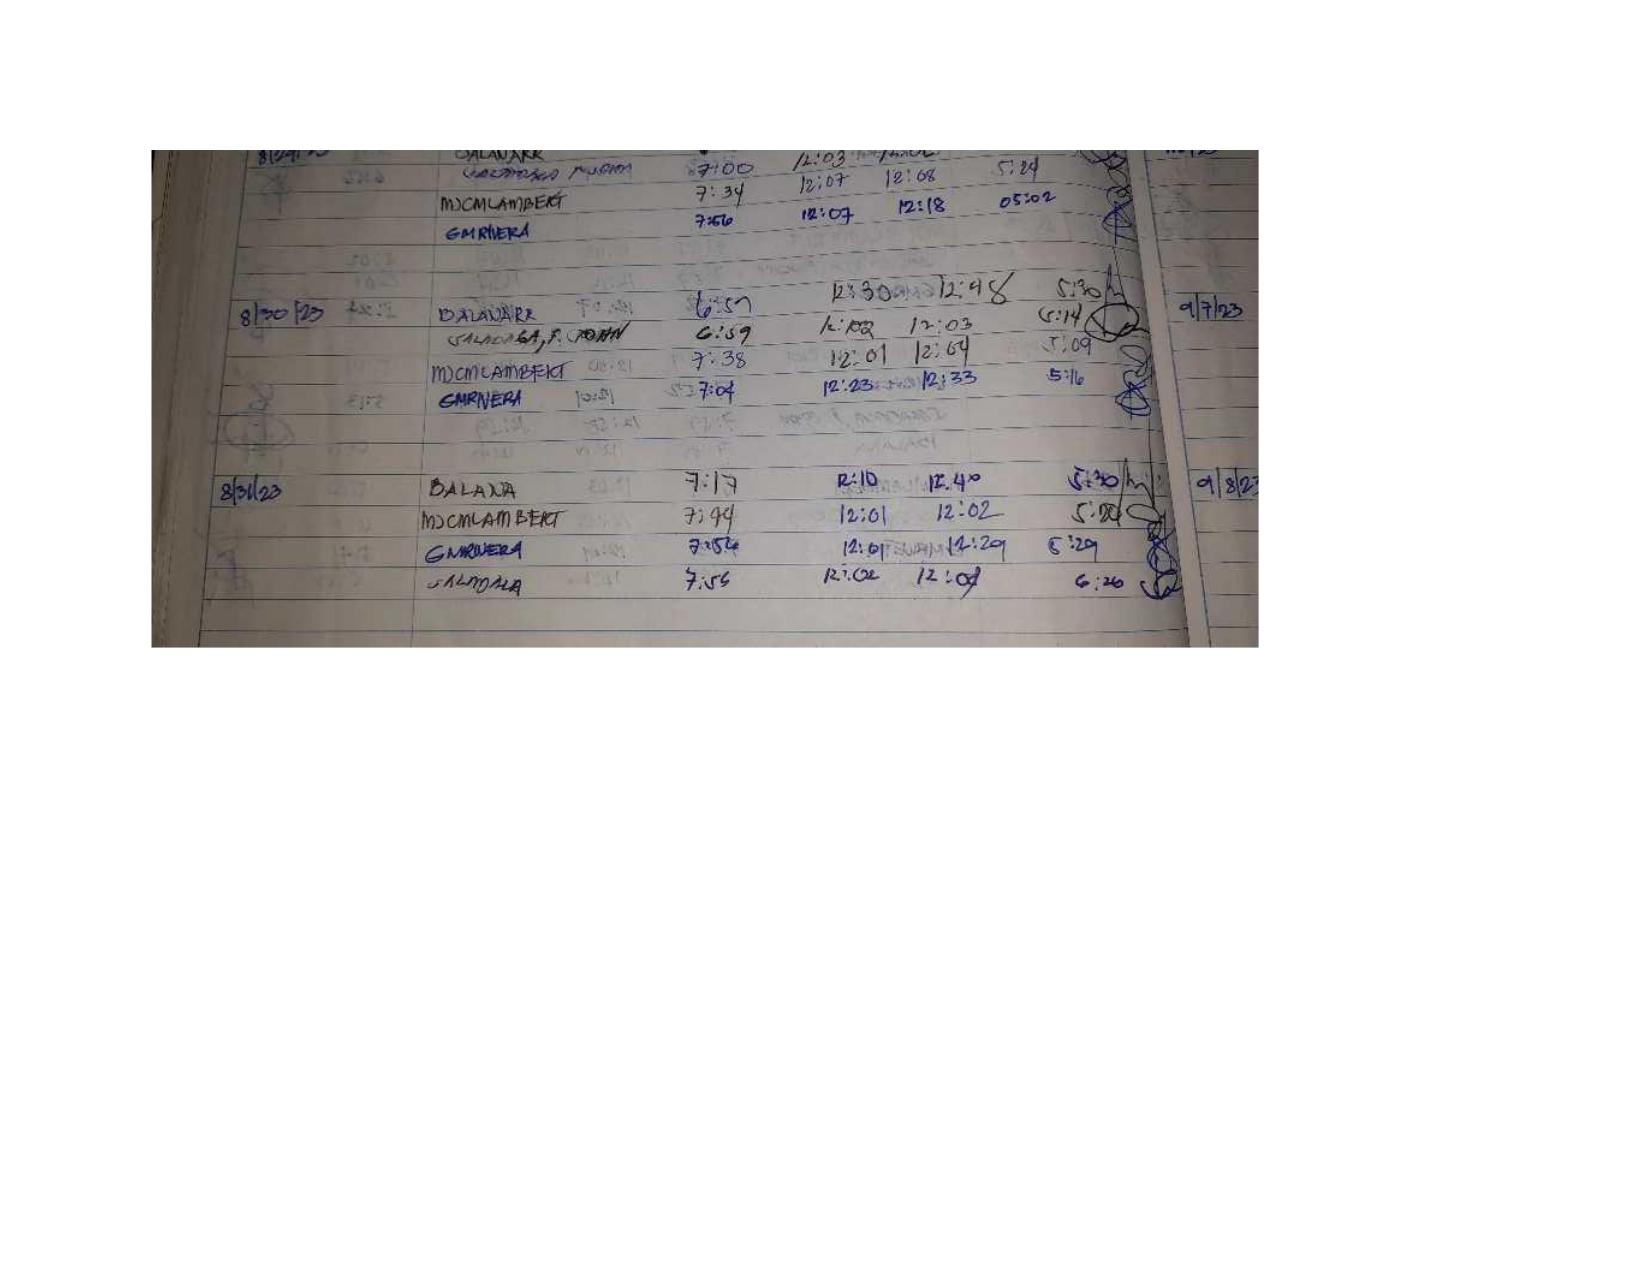 BALANARR 12:03
7:00 12:07 12:08 5:24
MJCMLAMBERT 7:34 12:07 12:18 05:02
GMRIVERA 7:56
8/30/23 BALANARR 6:57 12:30 12:48 5:30 9/7/23
6:59 12:02 12:03 5:14
MJCMLAMBERT 7:38 12:01 12:04 5:09
GMRIVERA 7:04 12:23 12:33 5:16
8/31/23 BALANA 7:17 12:10 12:40 5:30 9/8/23
MJCMLAMBERT 7:44 12:01 12:02 5:20
GMRIVERA 7:56 12:01 12:29 5:29
7:55 12:02 6:20